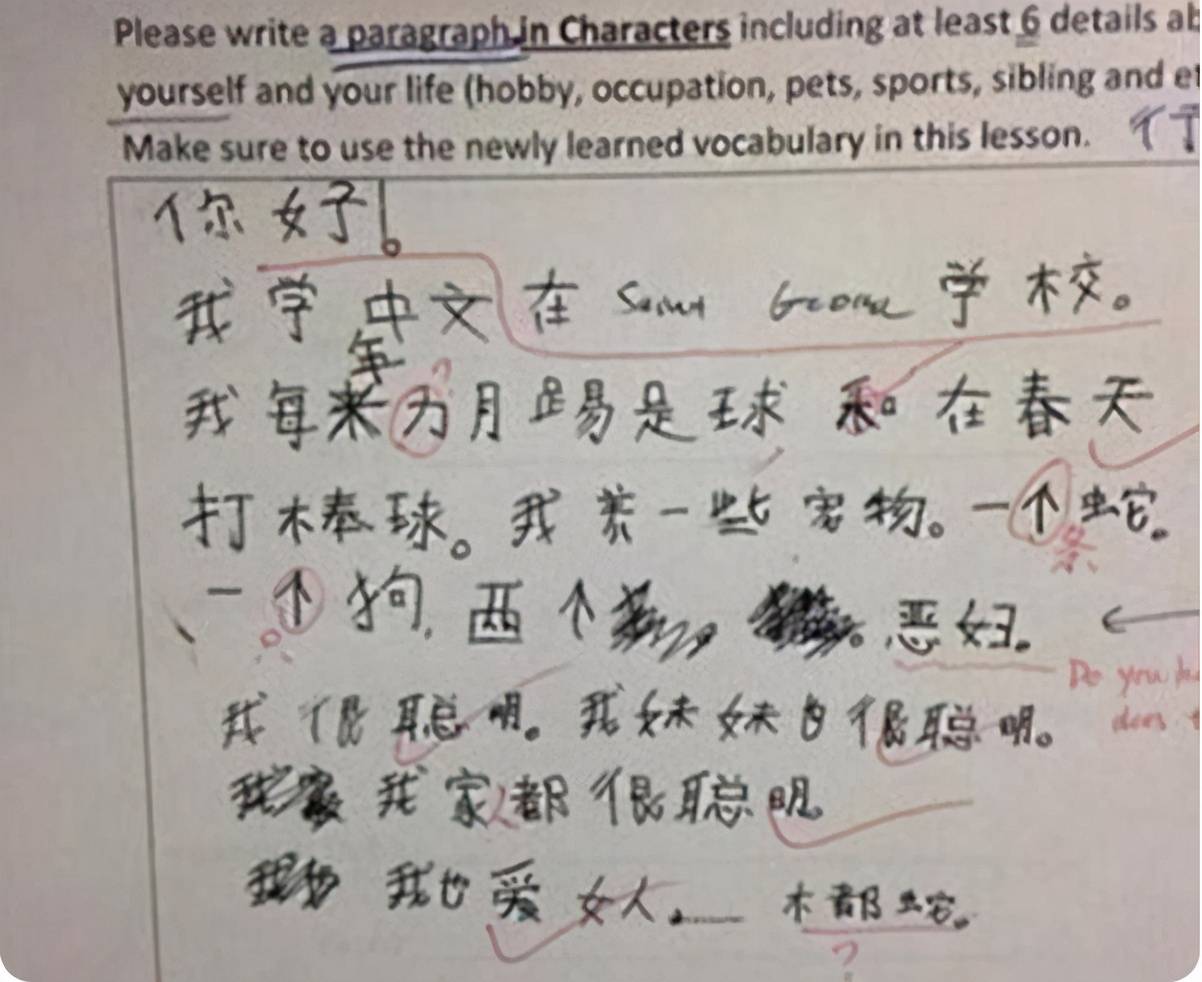 Please write a paragraph in Characters including at least 6 details
yourself and your life (hobby, occupation, pets, sports, sibling and
Make sure to use the newly learned vocabulary in this lesson.
你好!
我学中文在 Saint George 学校。
年
我每 月踢是球 。在春天
打棒球。我养一些宠物。一个蛇.
条
一个狗, 两个 。恶妇.
Do you
does
我很聪明。我妹妹也很聪明。
我家人都很聪明.
我也爱女人. 木都蛇。
?